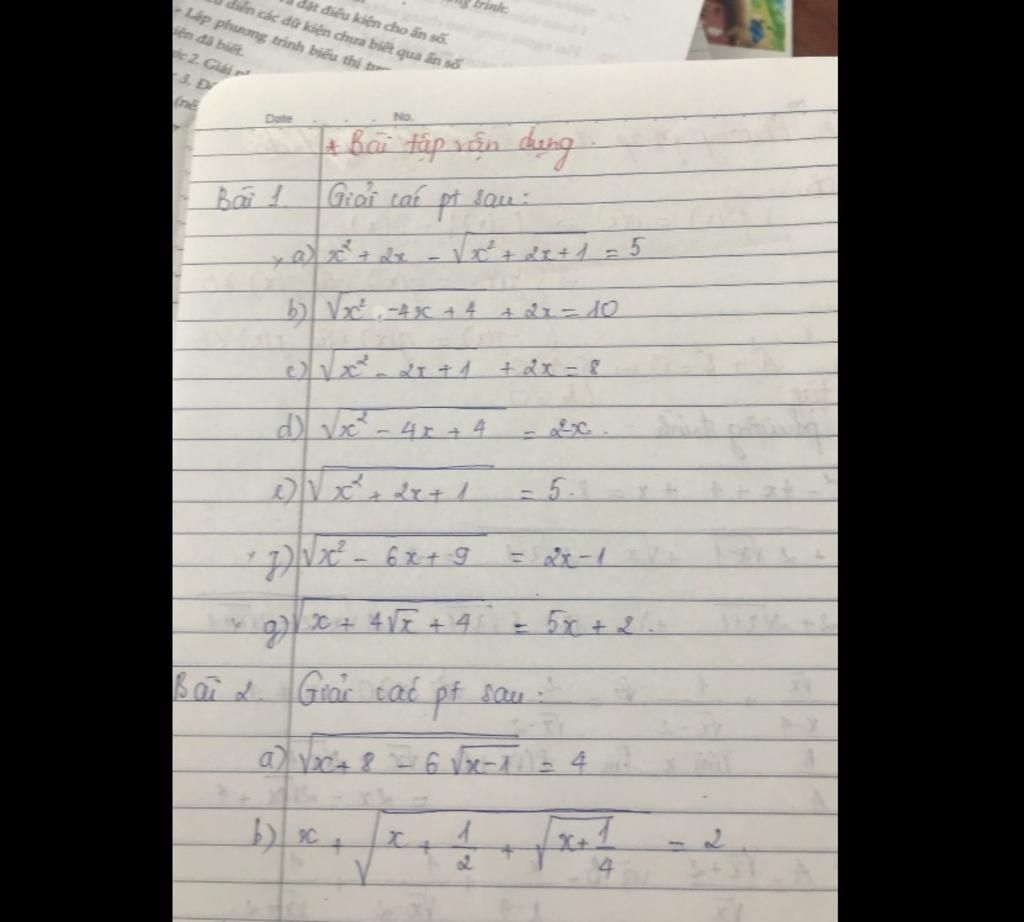 đặt điều kiện cho ẩn số.
diễn các dữ kiện chưa biết qua ẩn số
Lập phương trình biểu thị
đã biết.
2. Giải
3.
Date . . . No.
* Bài tập vận dụng.
Bài 1. Giải các pt sau:
a) x² + 2x - √(x² + 2x + 1) = 5
b) √(x² - 4x + 4) + 2x = 10
c) √(x² - 2x + 1) + 2x = 8
d) √(x² - 4x + 4) = 2-x.
e) √(x² + 2x + 1) = 5.
f) √(x² - 6x + 9) = 2x-1
g) √(x + 4√x + 4) = 5x + 2.
Bài 2. Giải các pt sau:
a) √(x + 8 - 6√(x-1)) = 4
b) x + √(x + 1/2 + √(x + 1/4)) = 2.